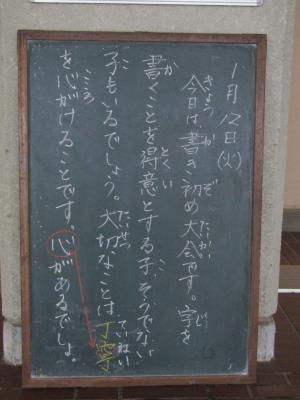 1月12日(火)
きょう か ぞ たいかい じ
今日は、書き初め大会です。字を
か とくい こ
書くことを得意とする子、そうでない
こ たいせつ ていねい
子もいるでしょう。大切なことは丁寧
こころ
を心がけることです。心があるでしょ。